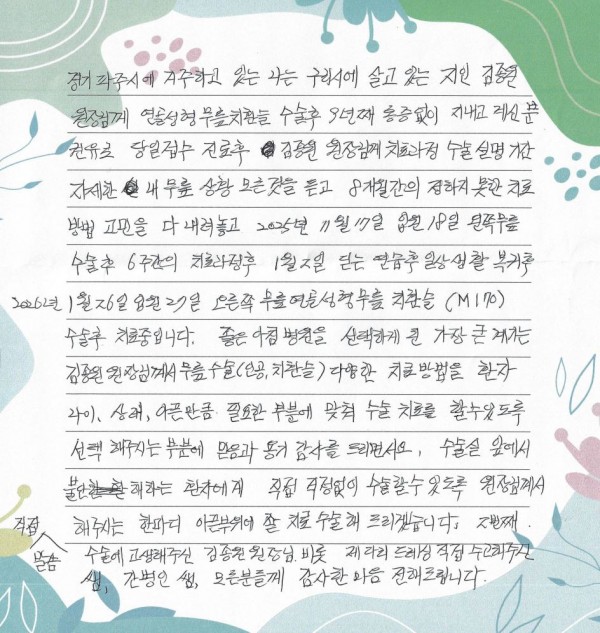 경기 파주시에 거주하고 있는 나는 구리시에 살고 있는 지인 김종원
원장님께 연골성형 무릎치환술 수술후 9년째 통증없이 지내고 계신 분
권유로 당일접수 진료후 김종원 원장님께 치료과정 수술 설명 기간
자세한 내 무릎 상황 모든것을 듣고 8개월간의 정하지 못한 치료
방법 고민을 다 내려놓고 2025년 11월 17일 입원 18일 왼쪽무릎
수술후 6주간의 치료과정후 1월 2일 걷는 연습후 일상생활 복귀후
2026년 1월 26일 입원 27일 오른쪽 무릎연골성형무릎 치환술 (M170)
수술후 치료중입니다. 좋은아침병원을 선택하게 된 가장 큰 계기는
김종원원장님께서 무릎수술(인공,치환술) 다양한 치료방법을 환자
나이, 상태, 아픈만큼 필요한 부분에 맞춰 수술 치료를 할수있도록
선택 해주시는 부분에 믿음과 용기 감사를 드리면서요, 수술실 앞에서
불안해하는 환자에게 직접 걱정없이 수술할수 있도록 원장님께서
직접 해주시는 한마디 아픈부위에 잘 치료 수술해 드리겠습니다. 2번째
말씀 수술에 고생해주신 김종원원장님 비롯 제다리 드레싱 직접 수고해주신
쌤, 간병인 쌤, 모든분들께 감사한 마음 전해드립니다.